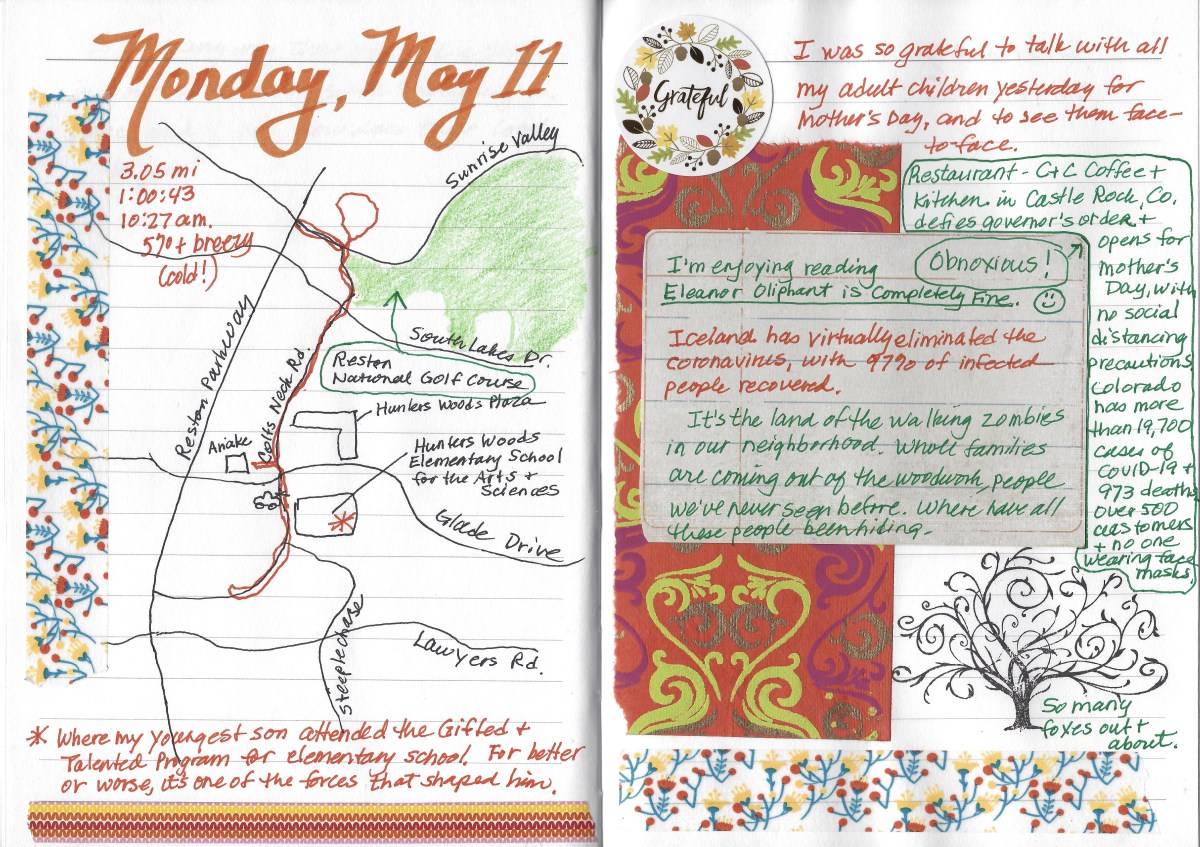 Monday, May 11
3.05 mi
1:00:43
10:27 am.
57° + breezy
(cold!)
Sunrise Valley
Reston Parkway
South Lakes Dr.
Reston
National Golf Course
Colts Neck Rd.
Hunters Woods Plaza
Anake
Hunters Woods
Elementary School
for the Arts +
Sciences
Glade Drive
Steeplechase
Lawyers Rd.
* Where my youngest son attended the Gifted +
Talented Program for elementary school. For better
or worse, it's one of the forces that shaped him.
Grateful
I was so grateful to talk with all
my adult children yesterday for
Mother's Day, and to see them face-
to-face.
Restaurant - C+C Coffee +
Kitchen in Castle Rock, Co.
defies governor's order +
opens for
mother's
Day, with
no social
distancing
precautions
Colorado
has more
than 19,700
cases of
COVID-19 +
973 deaths
over 500
customers
+ no one
wearing face
masks
Obnoxious!
I'm enjoying reading
Eleanor Oliphant is Completely Fine.
Iceland has virtually eliminated the
coronavirus, with 97% of infected
people recovered.
It's the land of the walking zombies
in our neighborhood. Whole families
are coming out of the woodwork, people
we've never seen before. Where have all
these people been hiding.
So many
foxes out +
about.